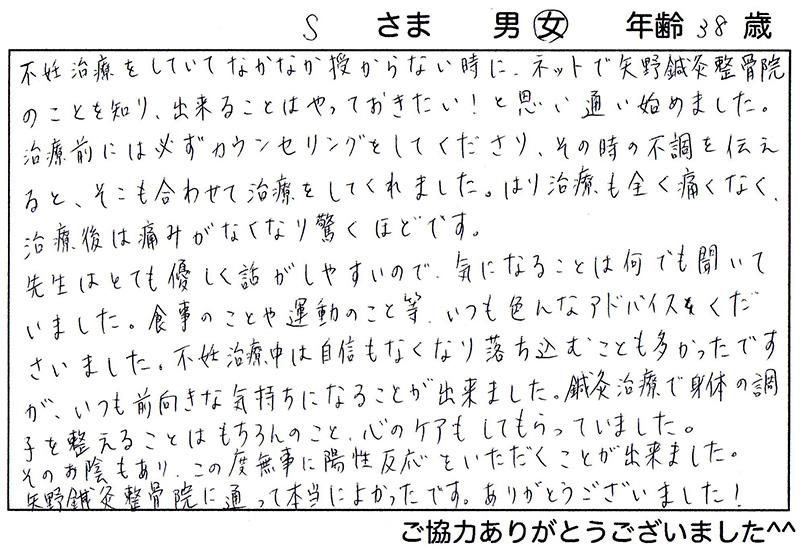 S さま 男 女 年齢 38 歳
不妊治療をしていてなかなか授からない時に、ネットで矢野鍼灸整骨院
のことを知り、出来ることはやっておきたい！と思い通い始めました。
治療前には必ずカウンセリングをしてくださり、その時の不調を伝え
ると、そこも合わせて治療をしてくれました。はり治療も全く痛くなく、
治療後は痛みがなくなり驚くほどです。
先生はとても優しく話がしやすいので、気になることは何でも聞いて
いました。食事のことや運動のこと等、いつも色んなアドバイスをくだ
さいました。不妊治療中は自信もなくなり落ち込むことも多かったです
が、いつも前向きな気持ちになることが出来ました。鍼灸治療で身体の調
子を整えることはもちろんのこと、心のケアもしてもらっていました。
そのお陰もあり、この度無事に陽性反応をいただくことが出来ました。
矢野鍼灸整骨院に通って本当によかったです。ありがとうございました！
ご協力ありがとうございました^^